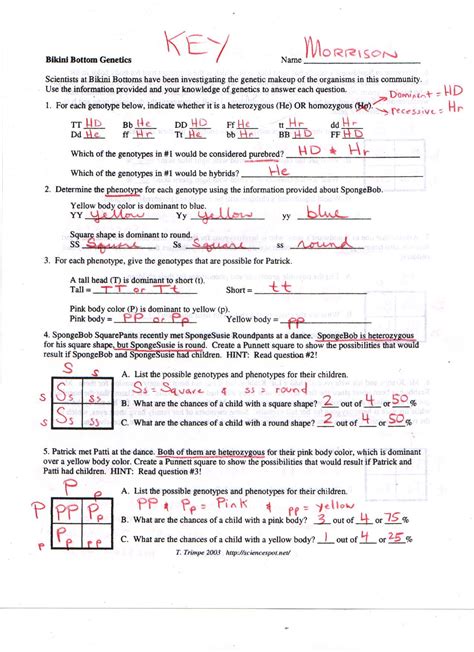 KEY
Bikini Bottom Genetics Name MORRISON
Scientists at Bikini Bottoms have been investigating the genetic makeup of the organisms in this community.
Use the information provided and your knowledge of genetics to answer each question.
Dominent = HD
1. For each genotype below, indicate whether it is a heterozygous (He) OR homozygous (Ho).
recessive = Hr
TT HD Bb He DD HD Ff He tt Hr dd Hr
Dd He ff Hr Tt He bb Hr BB HD FF HD
Which of the genotypes in #1 would be considered purebred? HD & Hr
Which of the genotypes in #1 would be hybrids? He
2. Determine the phenotype for each genotype using the information provided about SpongeBob.
Yellow body color is dominant to blue.
YY yellow Yy yellow yy blue
Square shape is dominant to round.
SS Square Ss Square ss round
3. For each phenotype, give the genotypes that are possible for Patrick.
A tall head (T) is dominant to short (t).
Tall = TT or Tt Short = tt
Pink body color (P) is dominant to yellow (p).
Pink body = PP or Pp Yellow body = pp
4. SpongeBob SquarePants recently met SpongeSusie Roundpants at a dance. SpongeBob is heterozygous
for his square shape, but SpongeSusie is round. Create a Punnett square to show the possibilities that would
result if SpongeBob and SpongeSusie had children. HINT: Read question #2!
S s
A. List the possible genotypes and phenotypes for their children.
s Ss ss
Ss = Square & ss = round
B. What are the chances of a child with a square shape? 2 out of 4 or 50 %
s Ss ss
C. What are the chances of a child with a round shape? 2 out of 4 or 50 %
5. Patrick met Patti at the dance. Both of them are heterozygous for their pink body color, which is dominant
over a yellow body color. Create a Punnett square to show the possibilities that would result if Patrick and
Patti had children. HINT: Read question #3!
P p
A. List the possible genotypes and phenotypes for their children.
P PP Pp
PP & Pp = Pink & pp = yellow
B. What are the chances of a child with a pink body? 3 out of 4 or 75 %
p Pp pp
C. What are the chances of a child with a yellow body? 1 out of 4 or 25 %
T. Trimpe 2003 http://sciencespot.net/